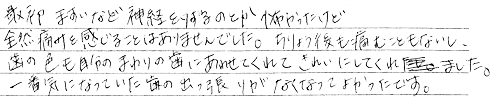 最初 ますいなど 神経をとするのとか 怖かったけど
全然痛みを感じることはありませんでした。ちりょう後も痛むこともないし、
歯の色も自分のまわりの歯にあわせてくれて きれいにしてくれました。
一番気になっていた歯の出っ張りがなくなってよかったです。